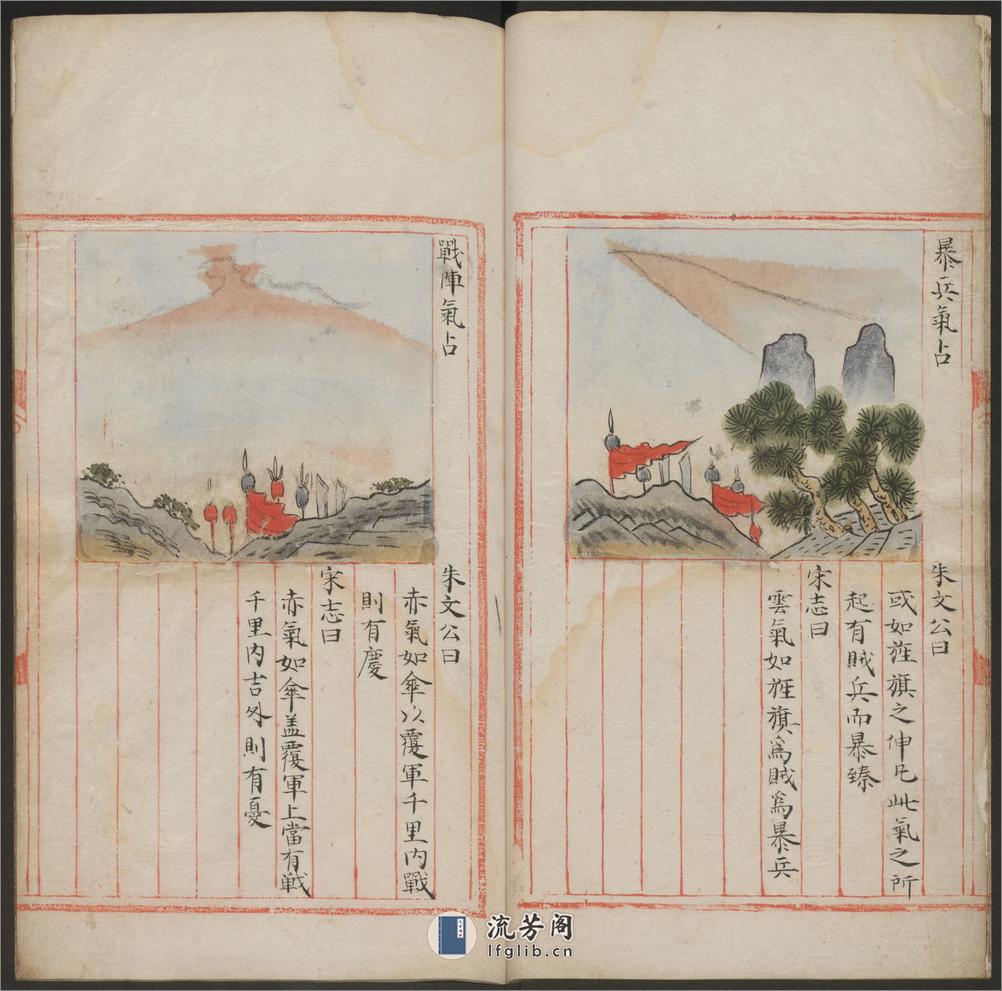 暴兵氣占
朱文公曰
或如旌旗之伸凡此氣之所
起有賊兵而暴臻
宋志曰
雲氣如旌旗為賊為暴兵
戰陣氣占
朱文公曰
赤氣如傘以覆軍千里內戰
則有慶
宋志曰
赤氣如傘盖覆軍上當有戦
千里內吉外則有憂
流芳阁
lfglib.cn